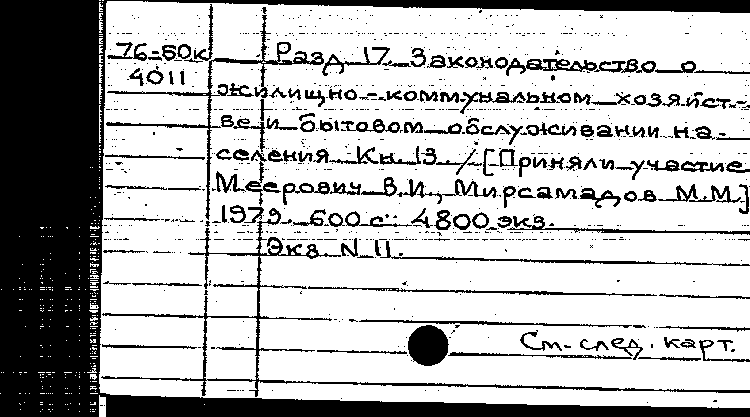 76-60к Разд. 17. Законодательство о
4011 жилищно-коммунальном хозяйст-
ве и бытовом обслуживании на-
селения. Кн. 13. / [Приняли участие
Меерович В.И., Мирсамадов М.М.]
1979. 600 с.: 4800 экз.
Экз. N 11.
См. след. карт.